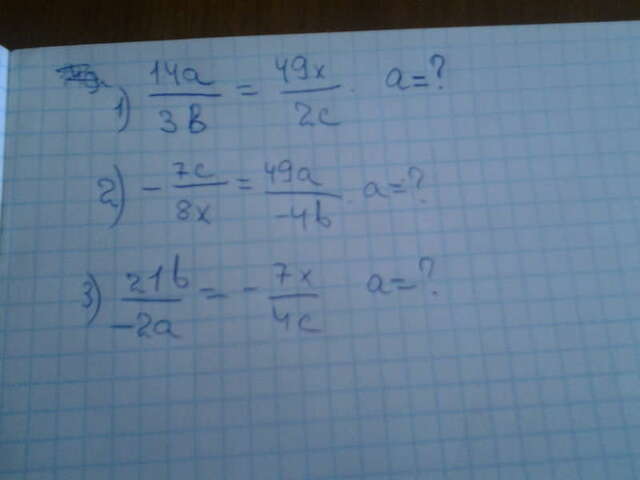 1) 14a/3b = 49x/2c. a=?
2) -7c/8x = 49a/-4b. a=?
3) 21b/-2a = -7x/4c a=?